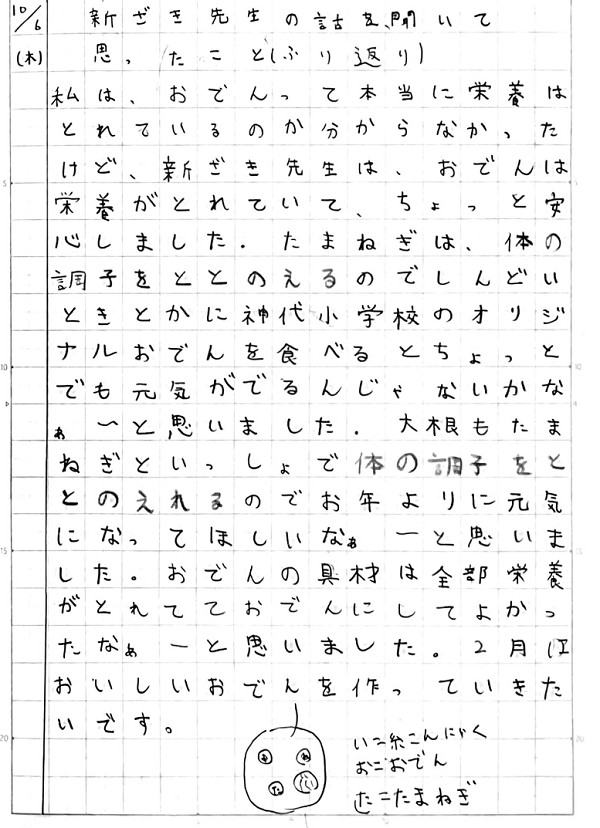 10/6
新ざき先生の話を、聞いて
(木)
思ったこと(ふり返り)
私は、おでんって本当に栄養は
とれているのか分からなかった
けど、新ざき先生は、おでんは
栄養がとれていて、ちょっと安
心しました。たまねぎは、体の
調子をととのえるのでしんどい
ときとかに神代小学校のオリジ
ナルおでんを食べるとちょっと
でも元気がでるんじゃないかな
ぁ〜と思いました。大根もたま
ねぎといっしょで体の調子をと
とのえれるのでお年よりに元気
になってほしいなぁーと思いま
した。おでんの具材は全部栄養
がとれてておでんにしてよかっ
たなぁーと思いました。2月は
おいしいおでんを作っていきた
いです。
い=糸こんにゃく
お=おでん
た=たまねぎ